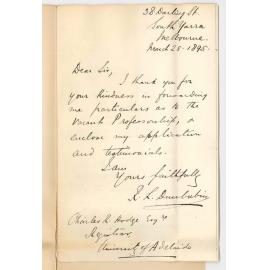 38 Darling St.
South Yarra
Melbourne.
March 25 - 1895.
Dear Sir,
I thank you for
your kindness in forwarding
me particulars as to the
Vacant Professorship, &
enclose my application
and testimonials.
I am
Yours faithfully
R. L. Dunbabin
Charles R. Hodge Esqre
Registrar
University of Adelaide